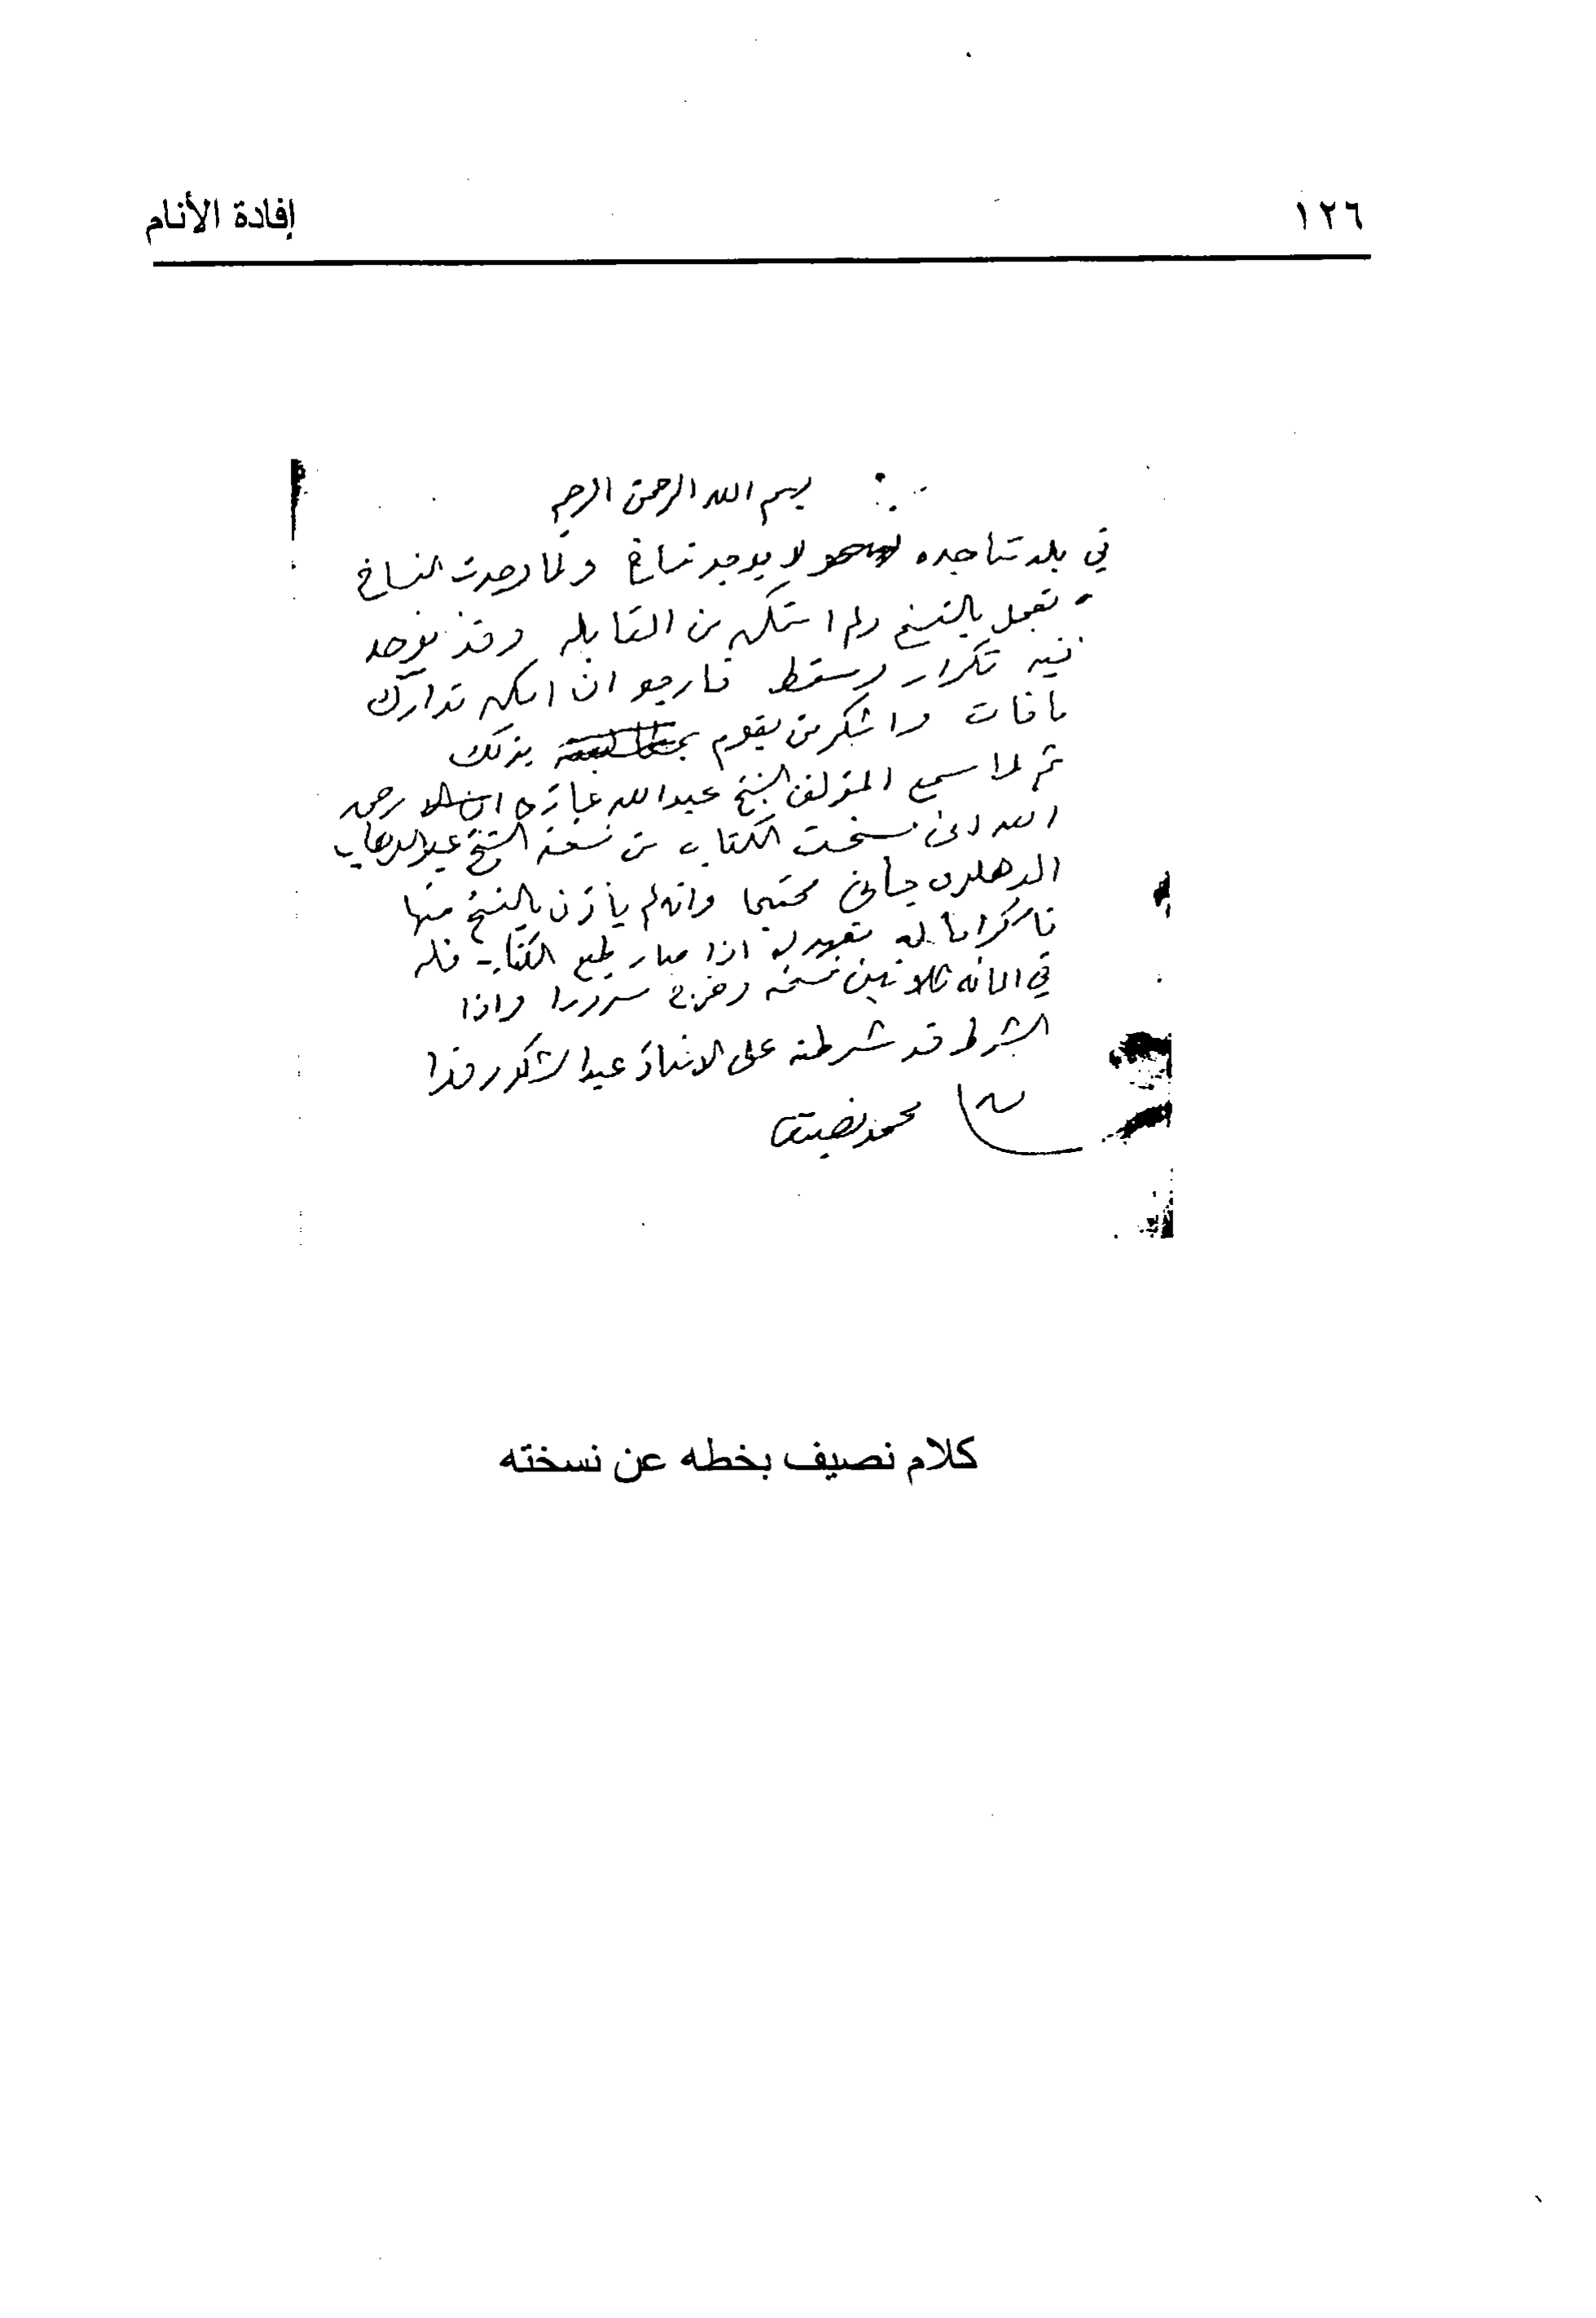 ١٢٦
إفادة الأنام
بسم الله الرحمن الرحيم
في بلدتنا جده لا يوجد نساخ ولما وجدت النساخ
تعجل بالنسخ ولم اتمكن من المقابله وقد يوجد
فيه تكرار وسقط فارجو ان امكن تدارك
ما فات واشكر من يقوم بذلك
ثم لما سمع المؤلف الشيخ عبدالله غازي رحمه
الله اني نسخت الكتاب من نسخة الشيخ عبدالوهاب
الدهلوي جاني محتجا وانه لم يأذن بالنسخ منها
فاكراما له تعهد له اذا صار طبع الكتاب فله
في المائه ثلاثين نسخه وخرج مسرورا واذا
الشرط قد شرطته على الاستاذ عبدالشكور فدا
محمد نصيف
كلام نصيف بخطه عن نسخته